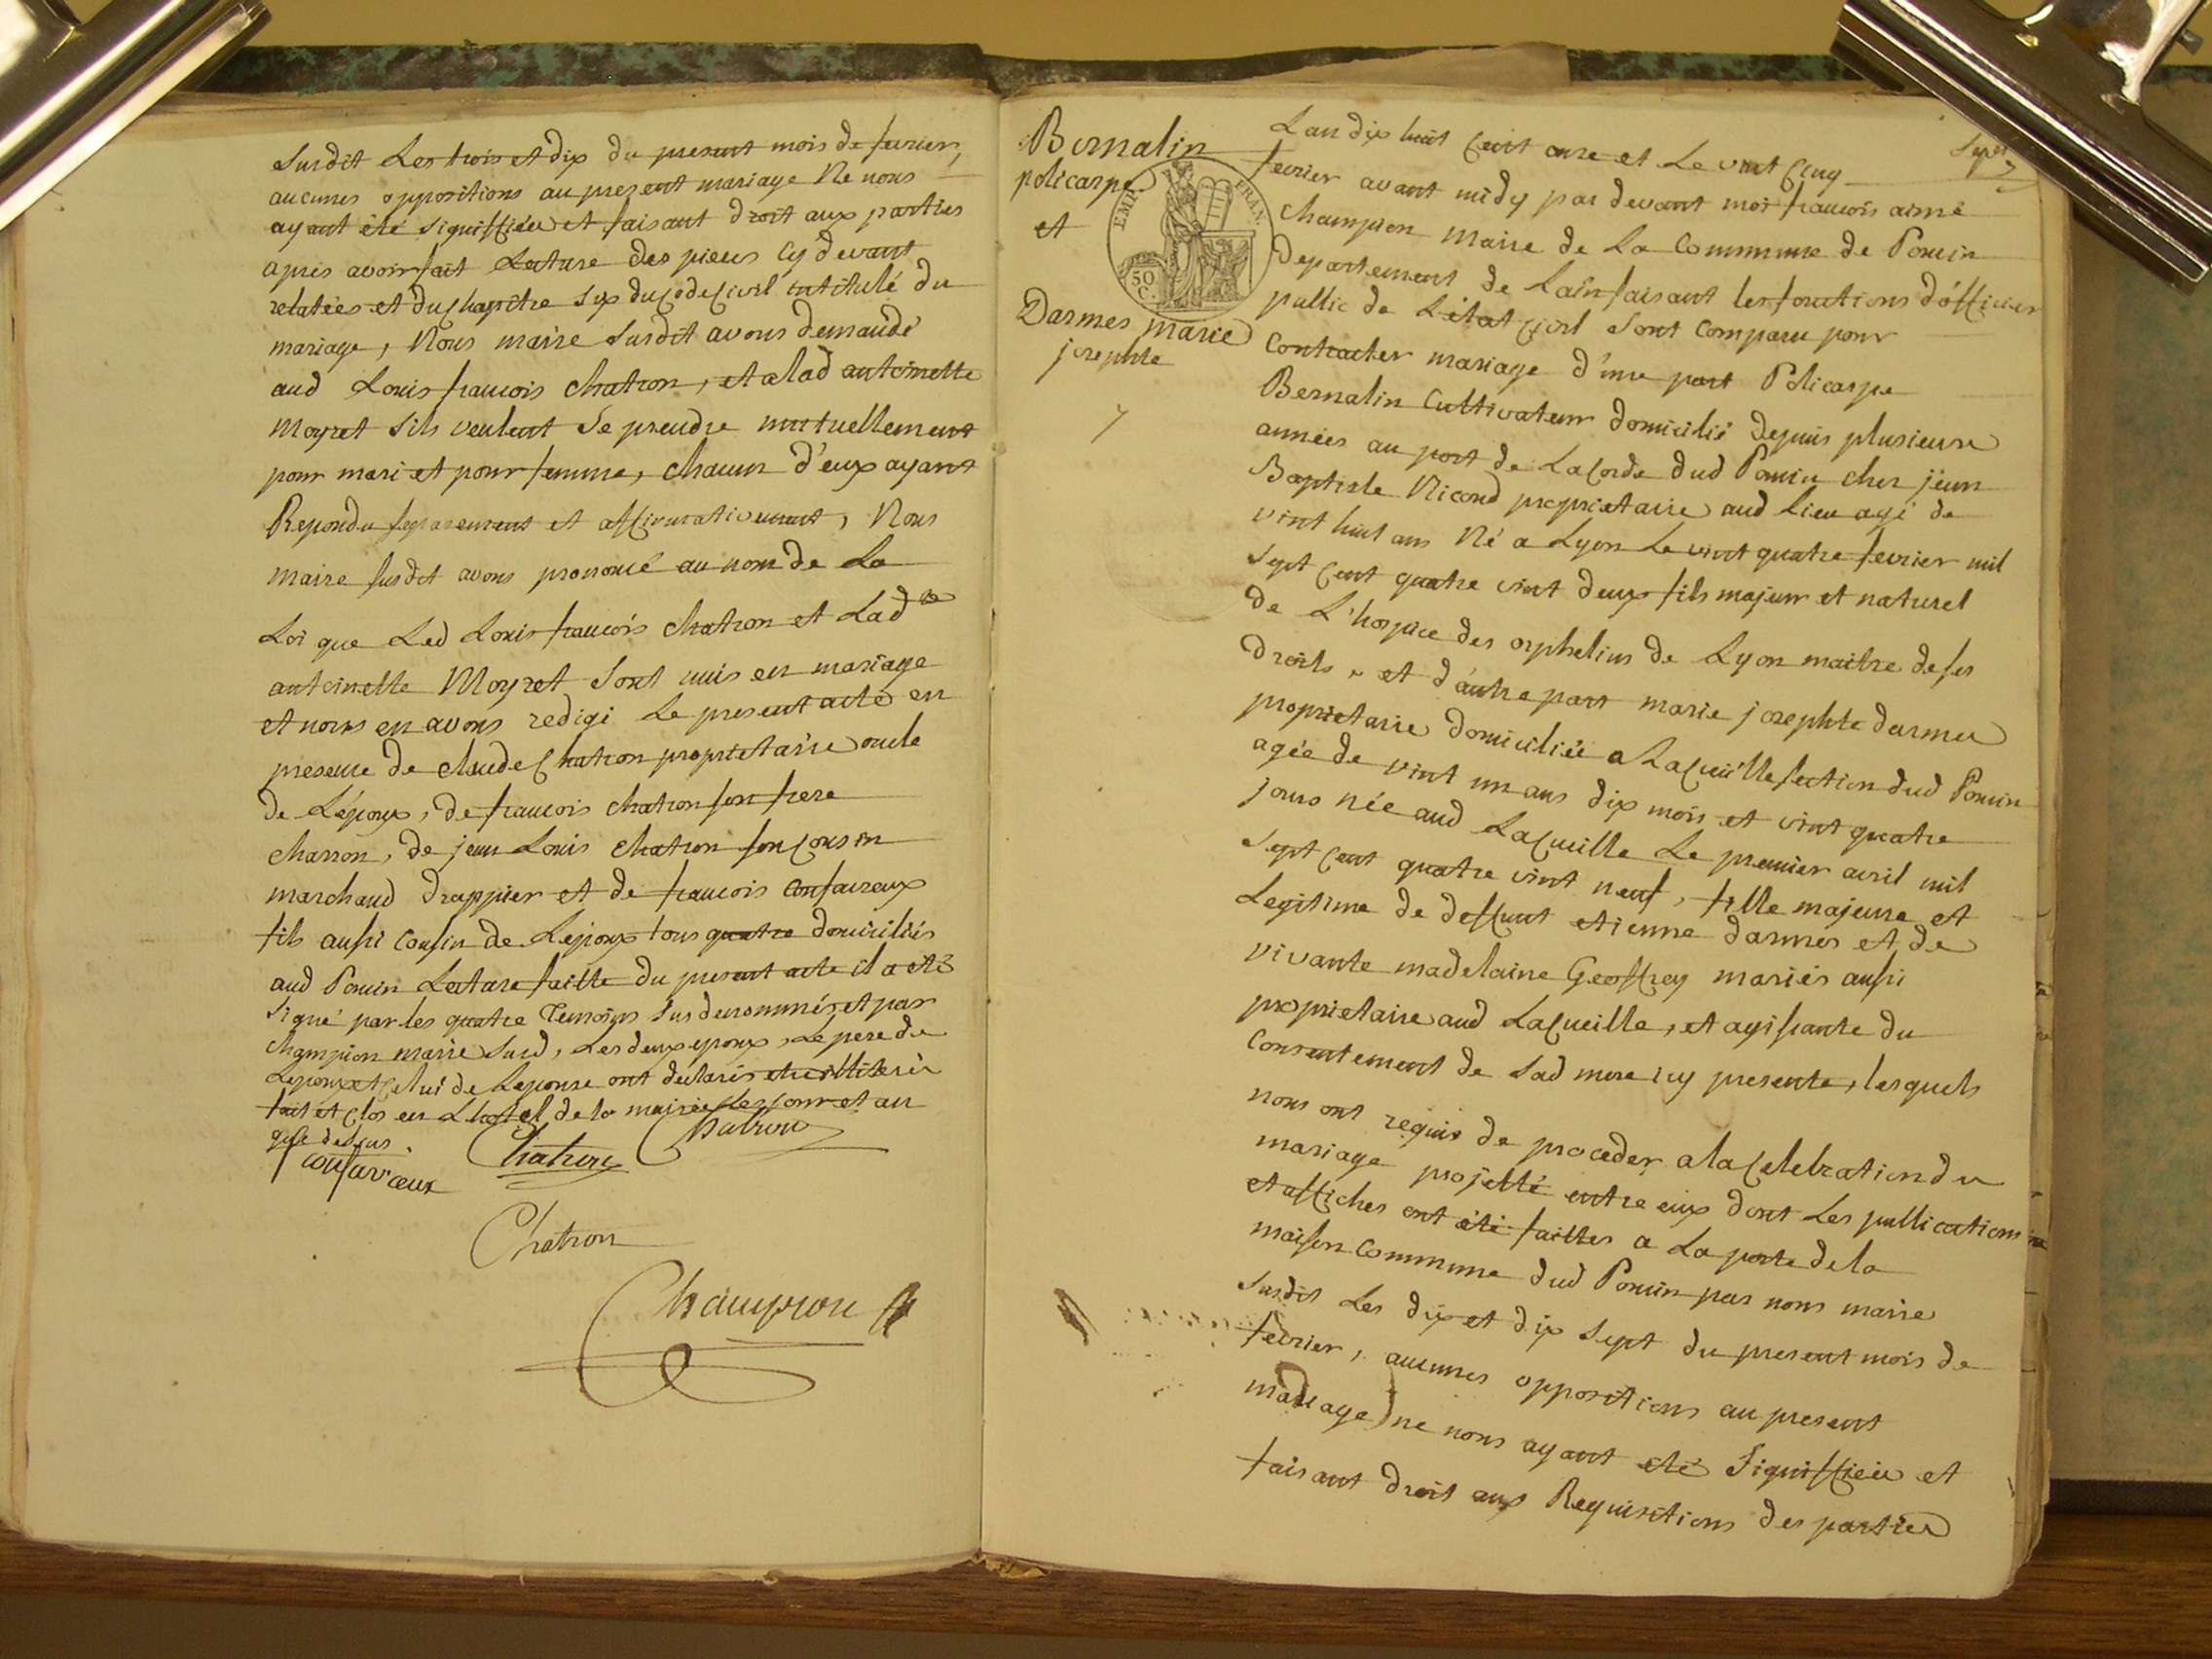 Susdit Les trois et dix du present mois de fevrier,
aucunes oppositions au present mariage Ne nous
ayant été signiffiées et faisant droit aux parties
apres avoir fait Lecture des pieces cy devant
relatées et du chapitre six du code civil intitulé du
mariage, Nous maire susdit avons demandé
aud Louis francois chatron, et a lad antoinette
Moyret s'ils veulent se prendre mutuellement
pour mari et pour femme, chacun d'eux ayant
Repondu separement et affirmativement, Nous
maire susdit avons prononcé au nom de La
Loi que Led Louis francois chatron et Lad te
antoinette Moyret sont unis en mariage
et nous en avons redigé Le present acte en
presence de claude chatron proprietaire oncle
de L'époux, de francois chatron son frere
charron, de jean Louis chatron son cousin
marchand drappier et de francois Confavreux
fils aussi cousin de L'epoux tous quatre domiciliés
aud Poncin Lecture faitte du present acte il a été
signé par les quatre Temoins sus denommés et par
champion maire susd, Les deux epoux, Le pere de
L'epoux et celui de L'epouse ont declarés etre illitterés
fait et clos en L'hotel de la mairie Les jour et an
que dessus
Confavreux Chatron Chatron
Chatron
Champion
Sept
7
Bernalin
policarpe
et
Darmes marie
josephte
7
EMP. FRAN.
50
C.
L'an dix huit cent onze et Le vint cinq
fevrier avant midy par devant moi francois aimé
champion Maire de La Commune de Poncin
Departement de L'ain faisant les fonctions d'officier
public de L'état civil sont comparu pour
Contracter mariage d'une part Policarpe
Bernalin Cultivateur domicilié depuis plusieurs
années au port de La corde dud Poncin chez jean
Baptiste Nicoud proprietaire aud Lieu agé de
vint huit ans Né a Lyon Le vint quatre fevrier mil
sept cent quatre vint deux fils majeur et naturel
de L'hospice des orphelins de Lyon maitre de ses
droits, et d'autre part marie josephte darmes
proprietaire domiciliée a La cueille section dud Poncin
agée de vint un ans dix mois et vint quatre
jours née aud La cueille Le premier avril mil
sept cent quatre vint neuf, fille majeure et
Legitime de deffunt etienne darmes et de
vivante madelaine Geoffrey mariés aussi
proprietaire aud La cueille, et agissante du
Consentement de sad mere icy presente, lesquels
nous ont requis de proceder a la celebration du
mariage projetté entre eux dont Les publications
et affiches ont été faittes a La porte de la
maison Commune dud Poncin par nous maire
susdit Les dix et dix sept du present mois de
fevrier, aucunes oppositions au present
mariage ne nous ayant été signiffiées et
faisant droit aux Requisitions des parties